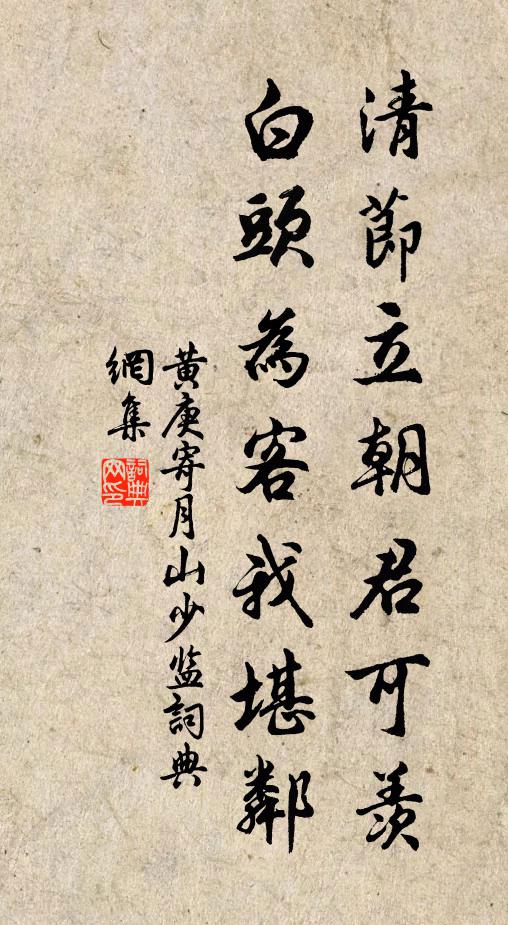 清節立朝君可羨
白頭為客我堪鄰
黄庚寄月山少监詞典
網集
詞典
网印